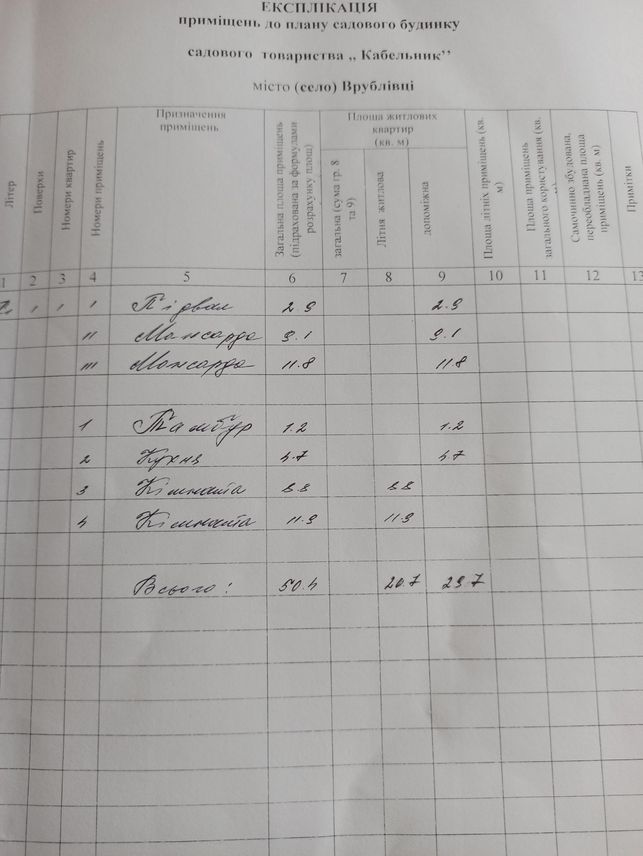 ЕКСПЛІКАЦІЯ
приміщень до плану садового будинку
садового товариства ,, Кабельник’’
місто (село) Врублівці
Літер
Поверхи
Номери квартир
Номери приміщень
Призначення
приміщень
Загальна площа приміщень
(підрахована за формулами
розрахунку площ)
Площа житлових
квартир
(кв. м)
загальна (сума гр. 8
та 9)
Літня житлова
допоміжна
Площа літніх приміщень (кв.
м)
Площа приміщень
загального користування (кв.
Самочинно збудована,
переобладнана площа
приміщень (кв. м)
Примітки
1 2 3 4 5 6 7 8 9 10 11 12 13
І І І Підвал 2.9 2.9
ІІ Мансарда 9.1 9.1
ІІІ Мансарда 11.8 11.8
1 Тамбур 1.2 1.2
2 Кухня 4.7 4.7
3 Кімната 8.8 8.8
4 Кімната 11.9 11.9
Всього: 50.4 20.7 29.7